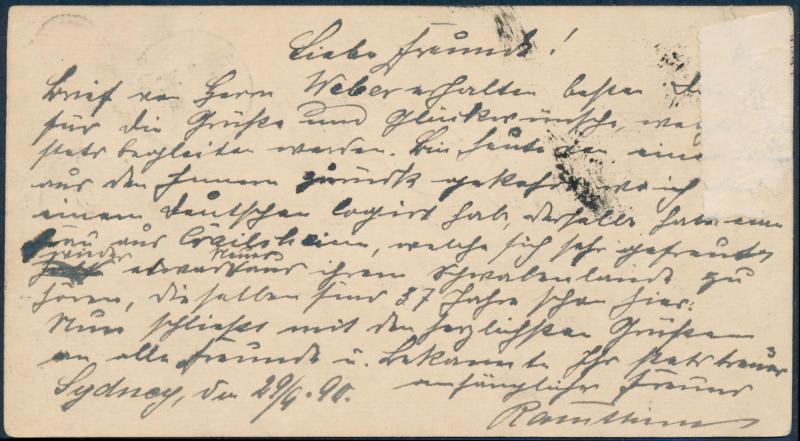 Liebe Freunde!
Brief von Herrn Weber erhalten besten
für die Grüße und Glückwünsche,
stets begleiten werden. Bin heute von
aus dem Innern zurück gekehrt wo ich
einem Deutschen logirt hab, derselbe hat eine
Frau aus, welche sich sehr gefreut
wieder etwas Neues aus ihrem Schwabenlande zu
hören, dieselben sind 37 Jahre schon hier.
Nun schließt mit den herzlichsten Grüßen
an alle Freunde u. Bekannte Ihr stets treuer
anhänglicher Freund
Sydney, den 29/9. 90.